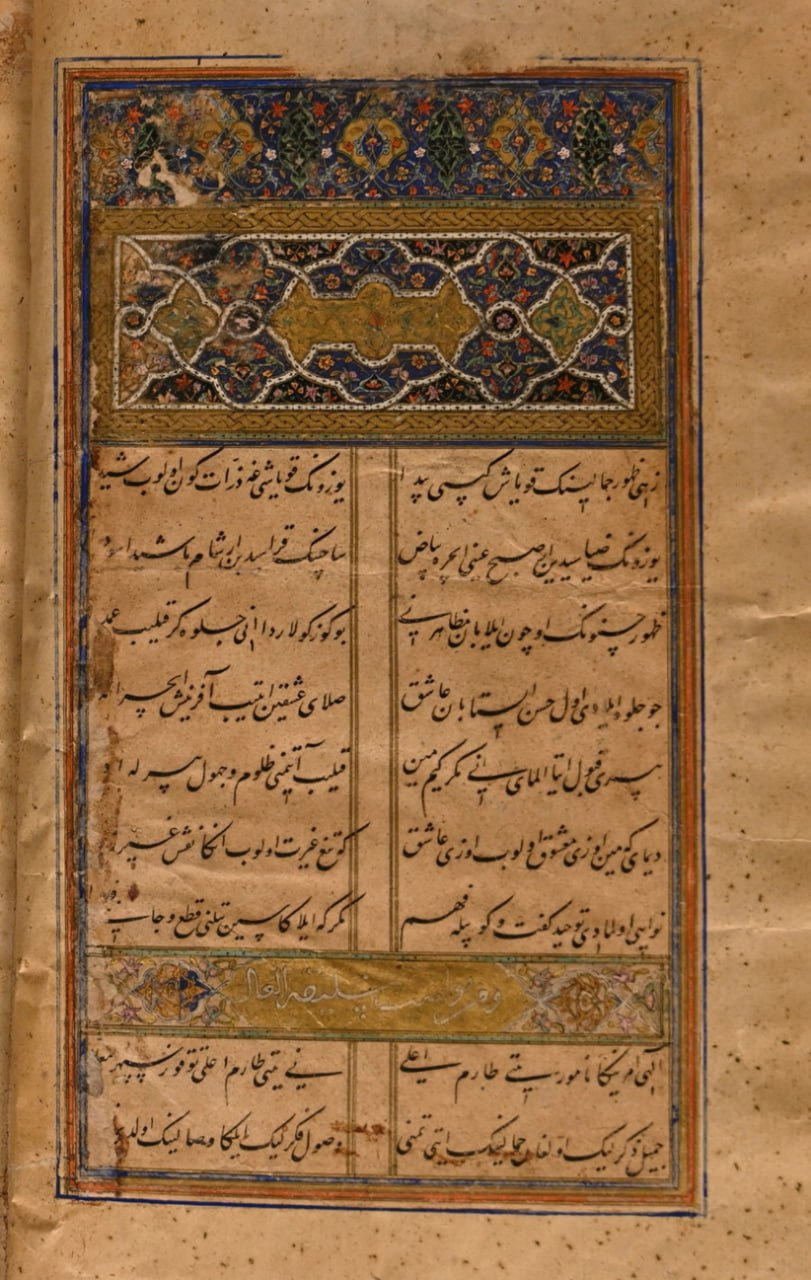 زهی ظهور جمالینک قویاش کیبی پیدا
یوزونک قویاشی غه ذرات کون اولوب شیدا
یوزونک ضیاسیدین ار صبح عینی ایچره بیاض
ساچینک قراسیدین ار شام باشیدا سودا
ظهور حسنونک اوچون ایلابان مظاهر نی
بو کوزکولاردا انی جلوه کر قیلیب عمدا
چو جلوه ایلادی اول حسن ایستابان عاشق
صلای عشقین ایتیب آفرینش ایچرا
سپهری قبول ایتا المای انی مکر کیم مین
قیلیب آتیمنی ظلوم و جهول بیرله
دیمای که مین اوزی معشوق اولوب اوزی عاشق
کوتیغ غیرت اولوب انکا نقش غیر
نوایی اولمادی توحید کفت و کو بیله فهم
مکر که ایلاکاسین تیلنی قطع و جاب
الهی امرینکا مامور یتی طارم اعلی
نی یتی طارم اعلی توقوز سپهر معلا
جمیل ذکرینک اولغان جمالینک ایتی تمنی
وصول فکرینک ایلکا وصالینک اولدی